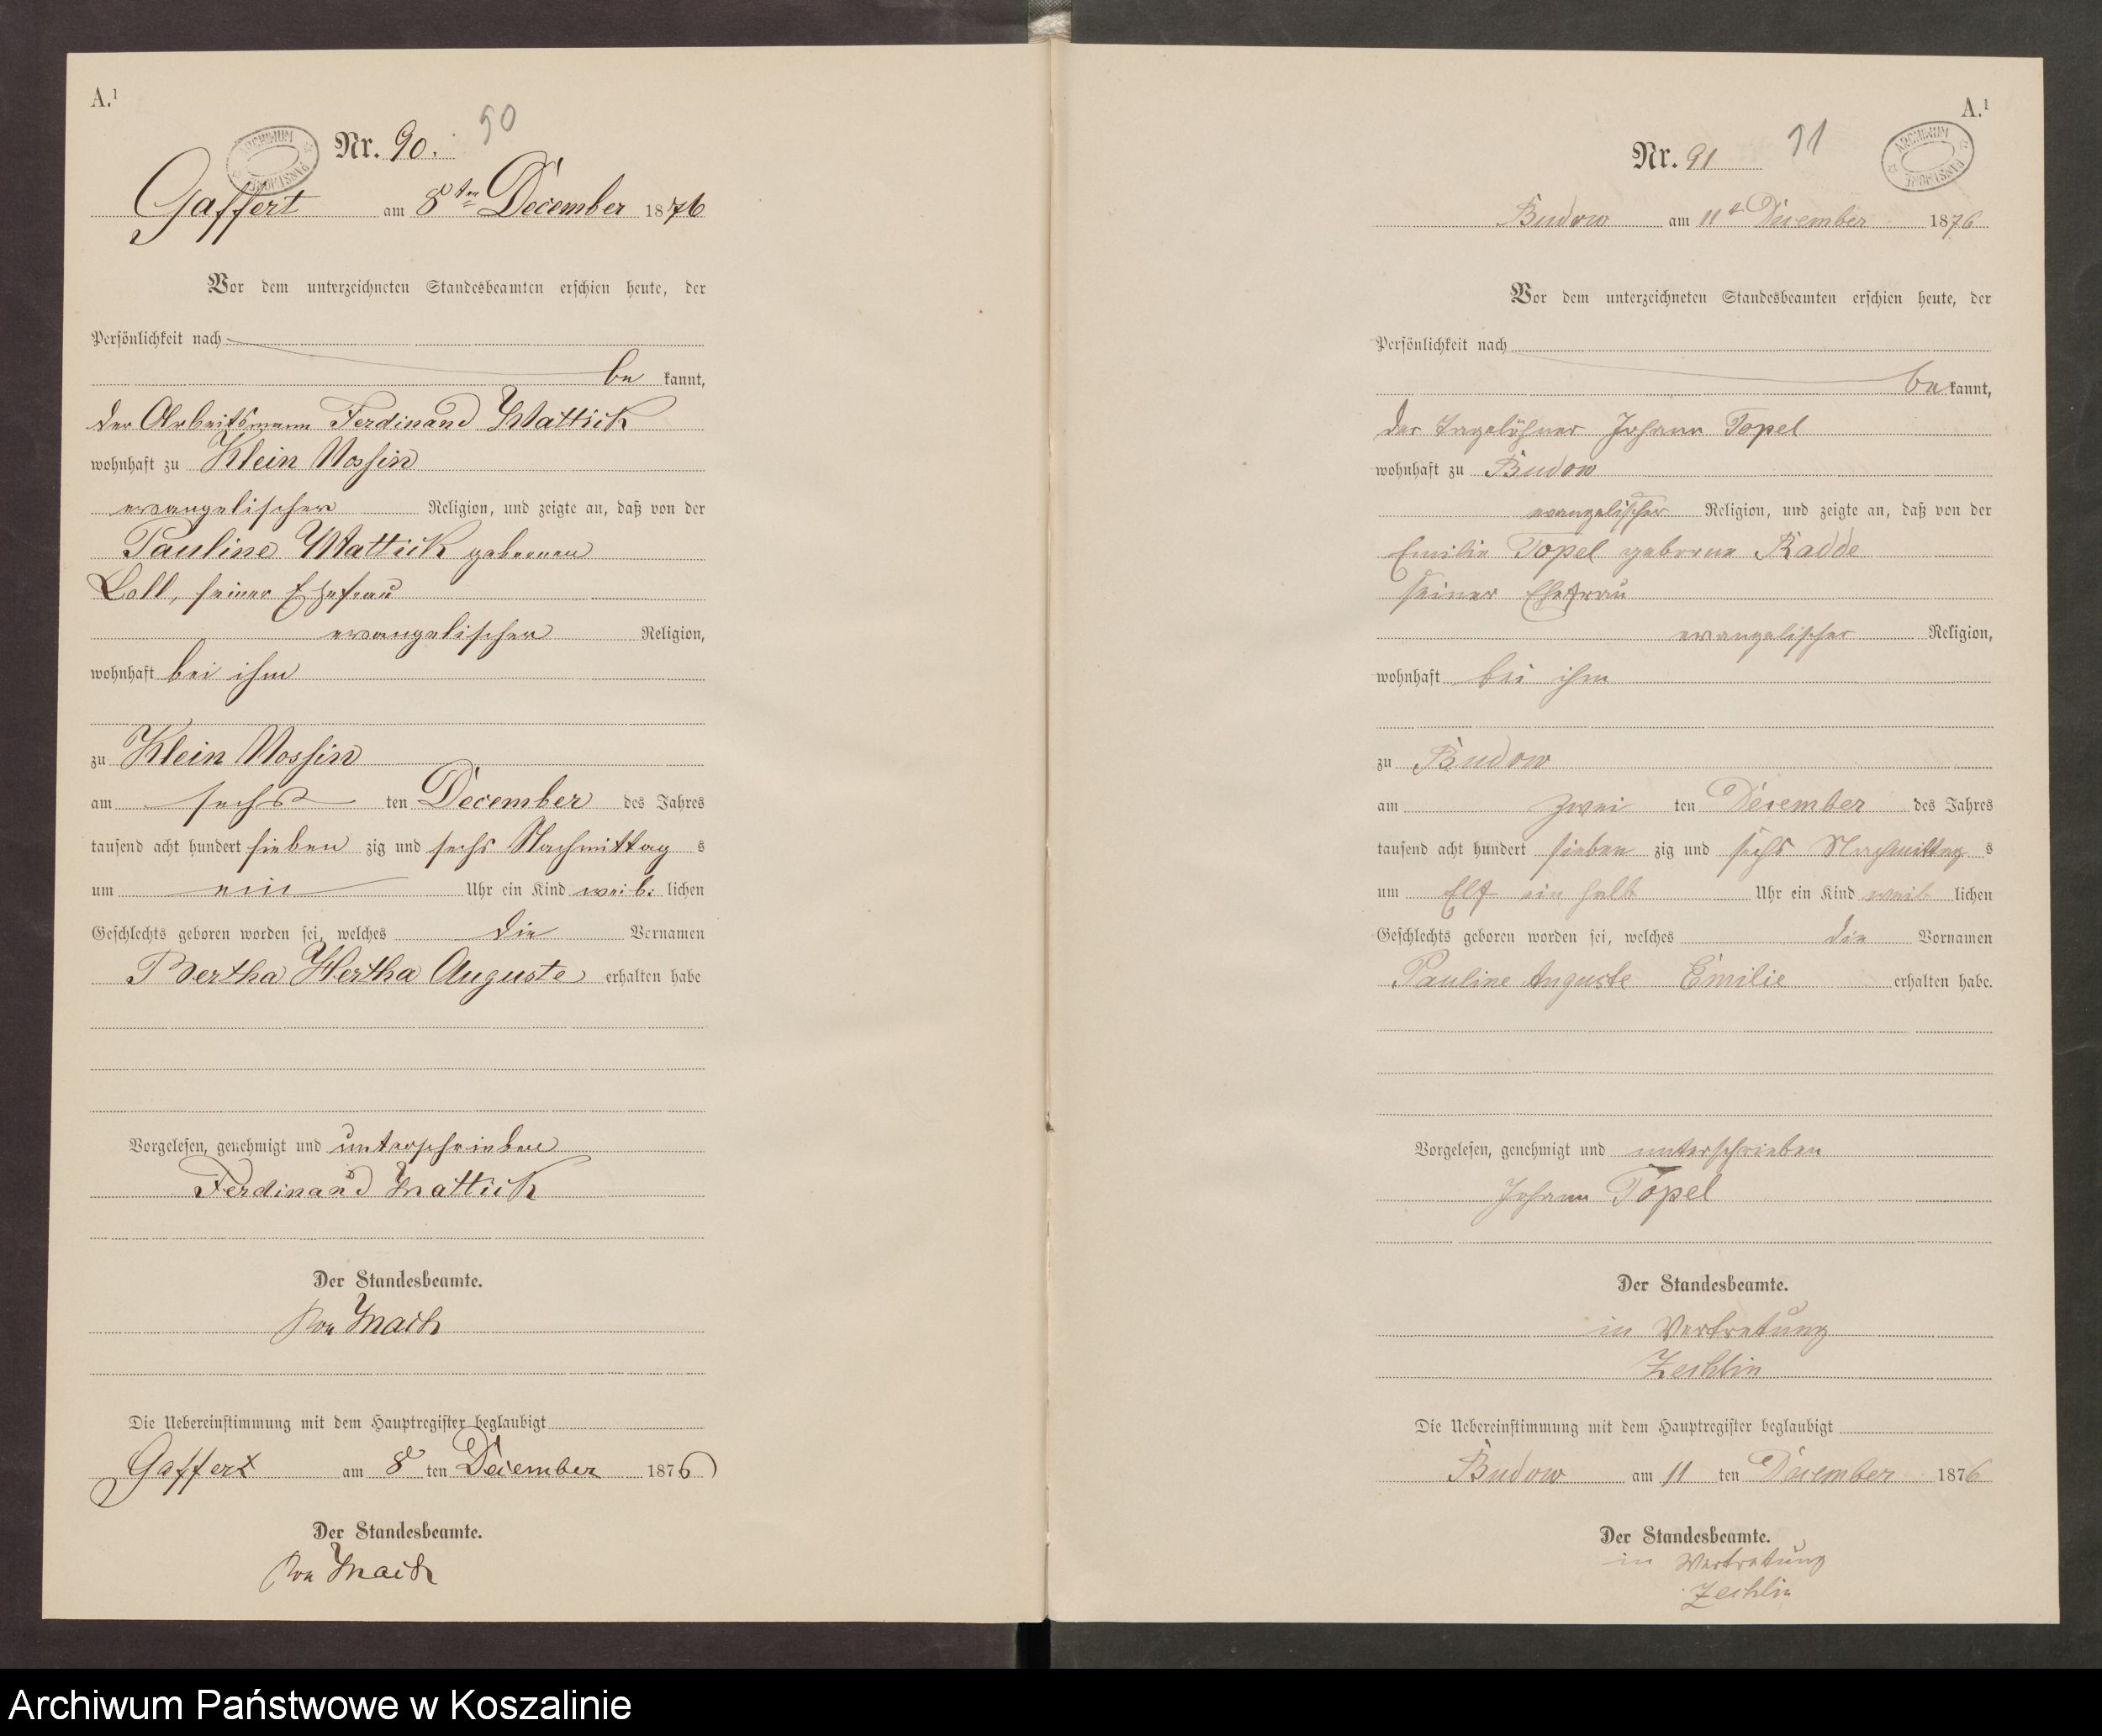 A.¹
ARCHIWUM PAŃSTWOWE
Nr. 90. 90
Gaffert am 8ten December 1876
Vor dem unterzeichneten Standesbeamten erschien heute, der
Persönlichkeit nach
be kannt,
der Arbeitsmann Ferdinand Mattick
wohnhaft zu Klein Nossin
evangelischer Religion, und zeigte an, daß von der
Pauline Mattick geborenen
Loll, seiner Ehefrau
evangelischer Religion,
wohnhaft bei ihm
zu Klein Nossin
am sechs ten December des Jahres
tausend acht hundert sieben zig und sechs Nachmittag s
um ein Uhr ein Kind weib. lichen
Geschlechts geboren worden sei, welches die Vornamen
Bertha Hertha Auguste erhalten habe
Vorgelesen, genehmigt und unterschrieben
Ferdinand Mattick
Der Standesbeamte.
von Mach
Die Uebereinstimmung mit dem Hauptregister beglaubigt
Gaffert am 8 ten December 1876
Der Standesbeamte.
von Mach
A.¹
ARCHIWUM PAŃSTWOWE
Nr. 91 91
Budow am 11t December 1876
Vor dem unterzeichneten Standesbeamten erschien heute, der
Persönlichkeit nach
be kannt,
der Tagelöhner Johann Topel
wohnhaft zu Budow
evangelischer Religion, und zeigte an, daß von der
Emilie Topel geborne Radde
seiner Ehefrau
evangelischer Religion,
wohnhaft bei ihm
zu Budow
am zwei ten December des Jahres
tausend acht hundert sieben zig und sechs Nachmittag s
um Elf ein halb Uhr ein Kind weib lichen
Geschlechts geboren worden sei, welches die Vornamen
Pauline Auguste Emilie erhalten habe.
Vorgelesen, genehmigt und unterschrieben
Johann Topel
Der Standesbeamte.
in Vertretung
Zechlin
Die Uebereinstimmung mit dem Hauptregister beglaubigt
Budow am 11 ten December 1876
Der Standesbeamte.
in Vertretung
Zechlin
Archiwum Państwowe w Koszalinie